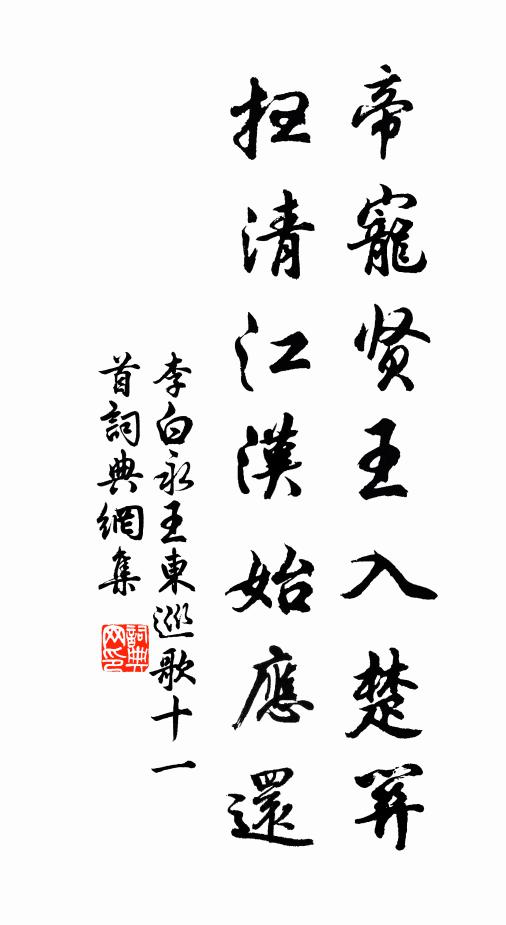 帝寵贤王入楚關
扫清江漢始應還
李白永王東巡歌十一
首詞典網集
詞典網印